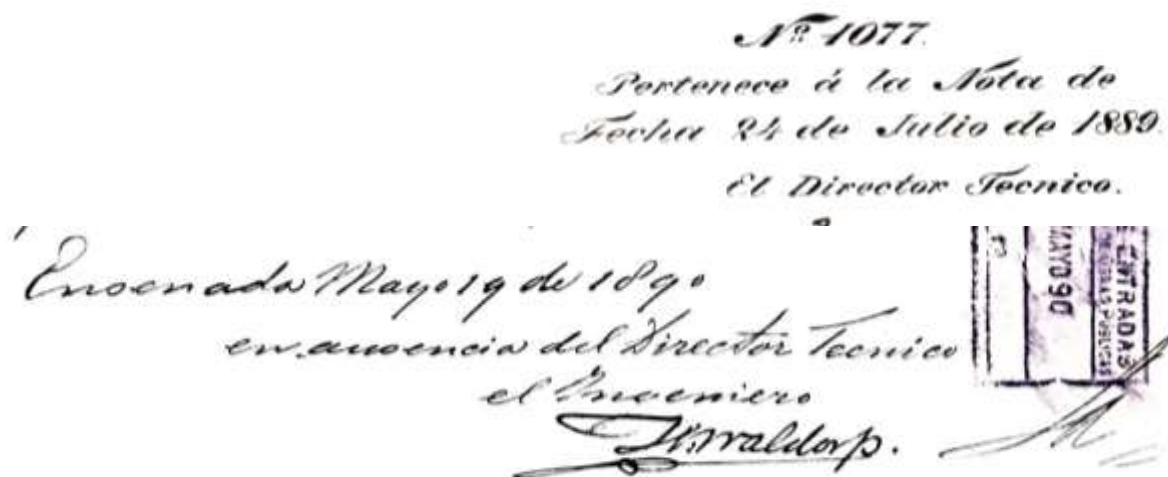 Nº 1077.
Pertenece á la Nota de
Fecha 24 de Julio de 1889.
El Director Tecnico.
Ensenada Mayo 19 de 1890
en ausencia del Director Tecnico
el Ingeniero
Waldorp.
ENTRADAS
DE OBRAS PUBLICAS
MAYO 90